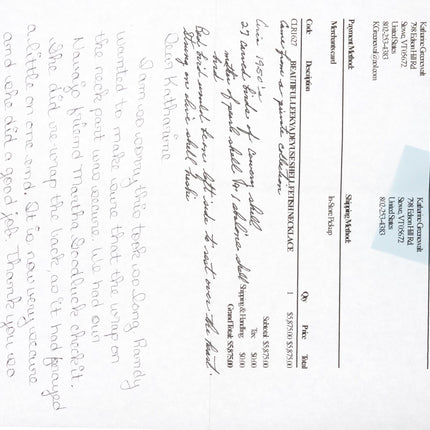 Katharine Greenewalt
798 Edson Hill Rd.
Stowe, VT 05672
United States
802-253-4383
KGreenewalt@aol.com
Katharine Greenewalt
798 Edson Hill Rd.
Stowe, VT 05672
United States
802-253-4383
Payment Method:
Merchants card
Shipping Method:
In-Store Pickup
Code Description Qty Price Total
CLR1627 BEAUTIFUL LEEKYA DEYUSE SHELL FETISH NECKLACE 1 $5,875.00 $5,875.00
Came from a private collection
Circa 1950's
27 carved birds of cowry shell
mother of pearl shell & abalone shell
bird
Subtotal: $5,875.00
Tax: $0.00
Shipping & Handling: $0.00
Grand Total: $5,875.00
Bird would turn left side to rest over the heart.
Strung on olive shell heshi
Dear Katharine
I am so sorry this took so long. Randy
wanted to make sure that the wrap on
the neck part was secure. We had our
Navajo friend Martha Goodluck check it.
She did rewrap the back, as it had frayed
a little on one end. It is now very secure
and she did a good job. Thank you so